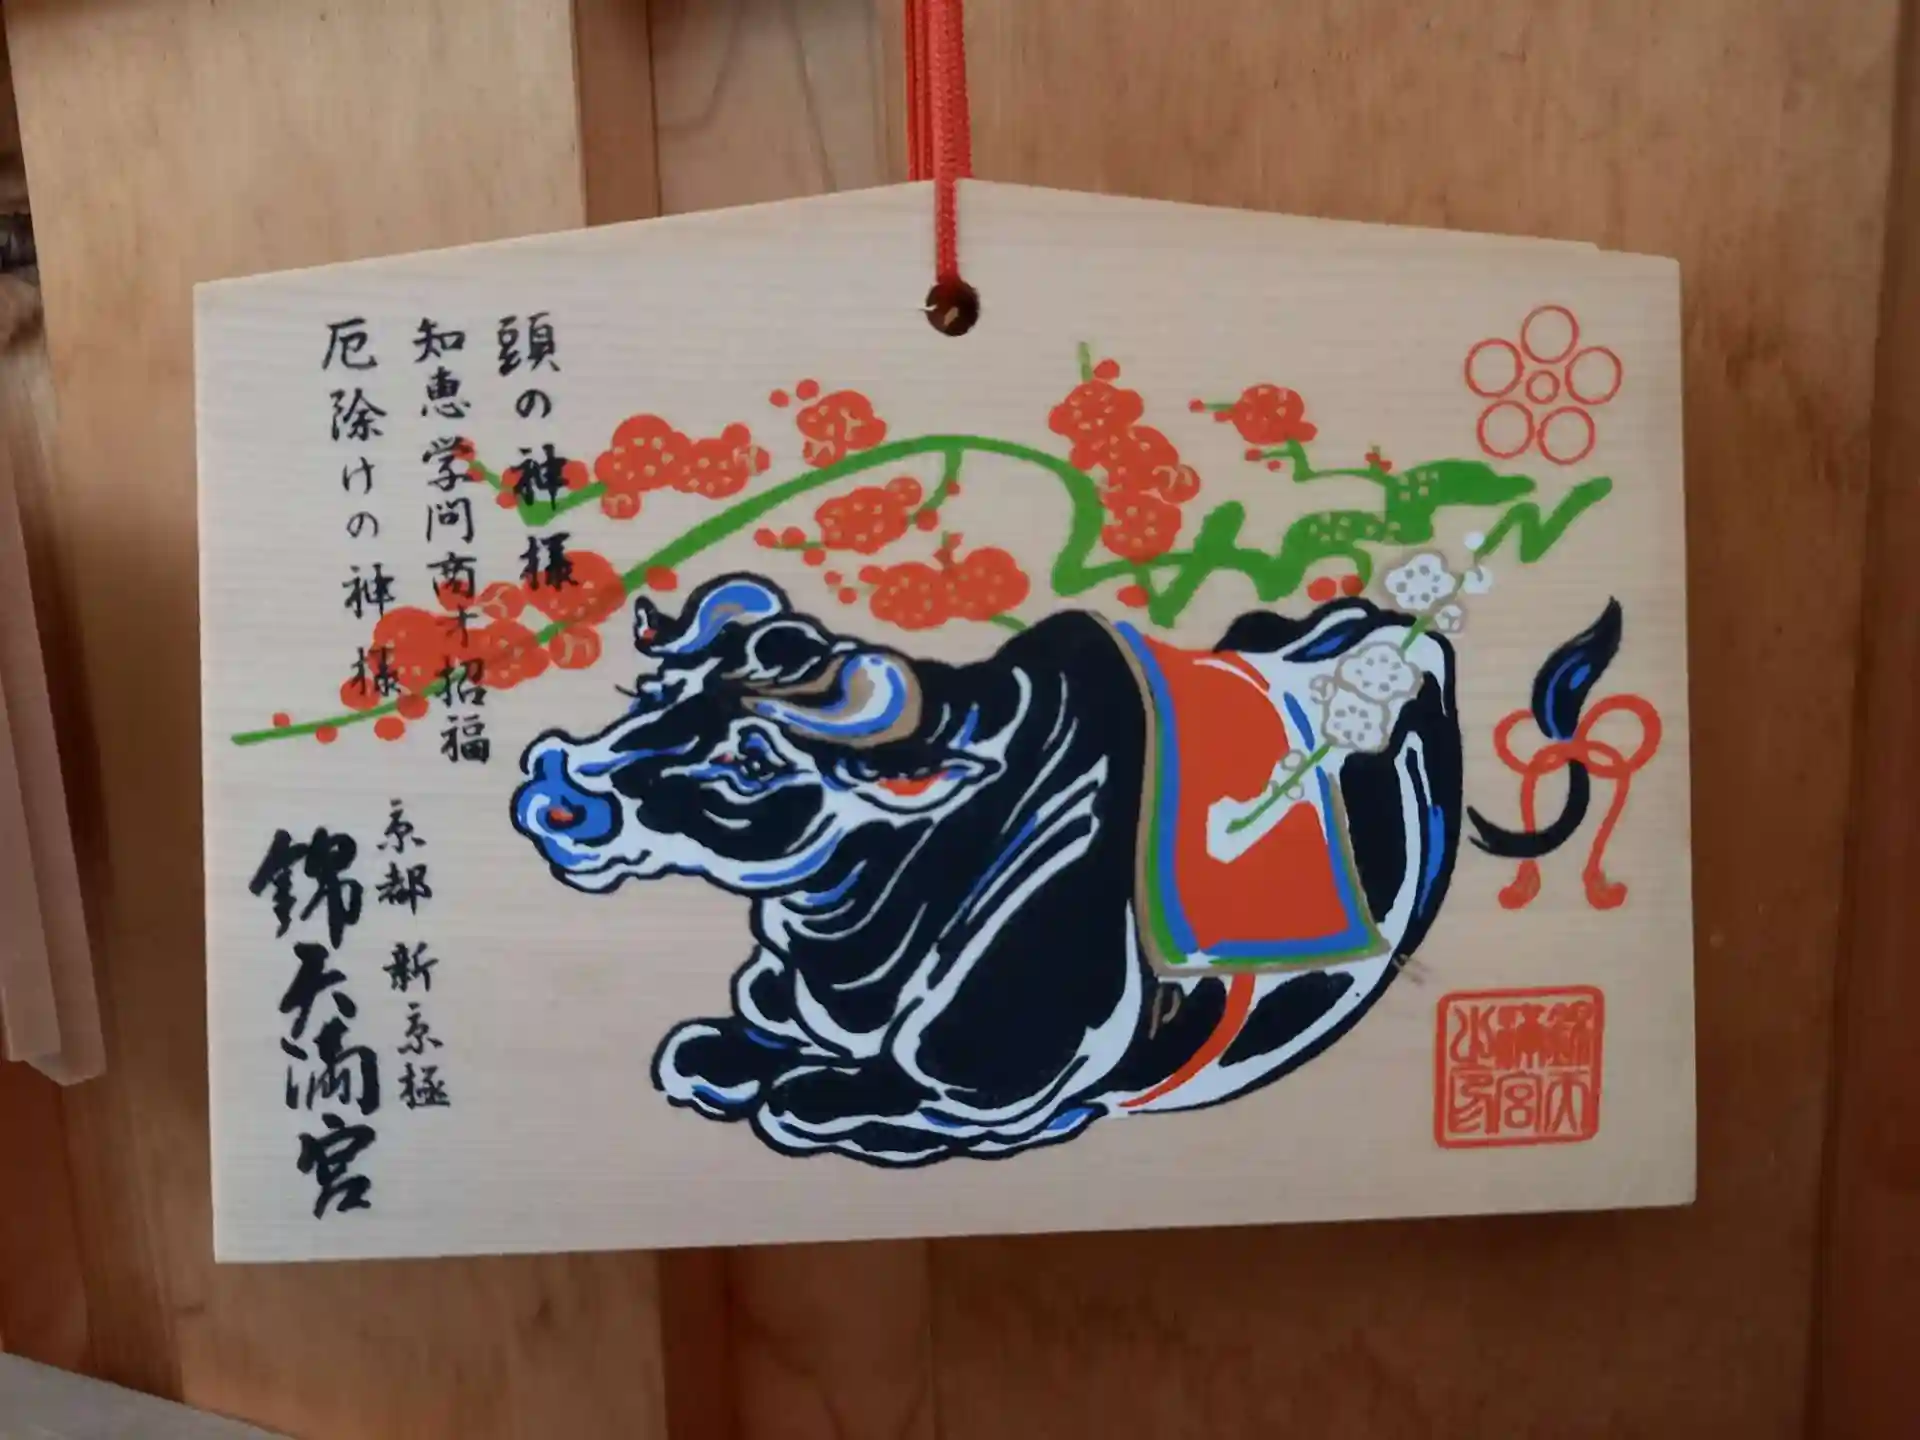 頭の神様
知恵学問商才招福
厄除けの神様
京都 新京極
錦天満宮